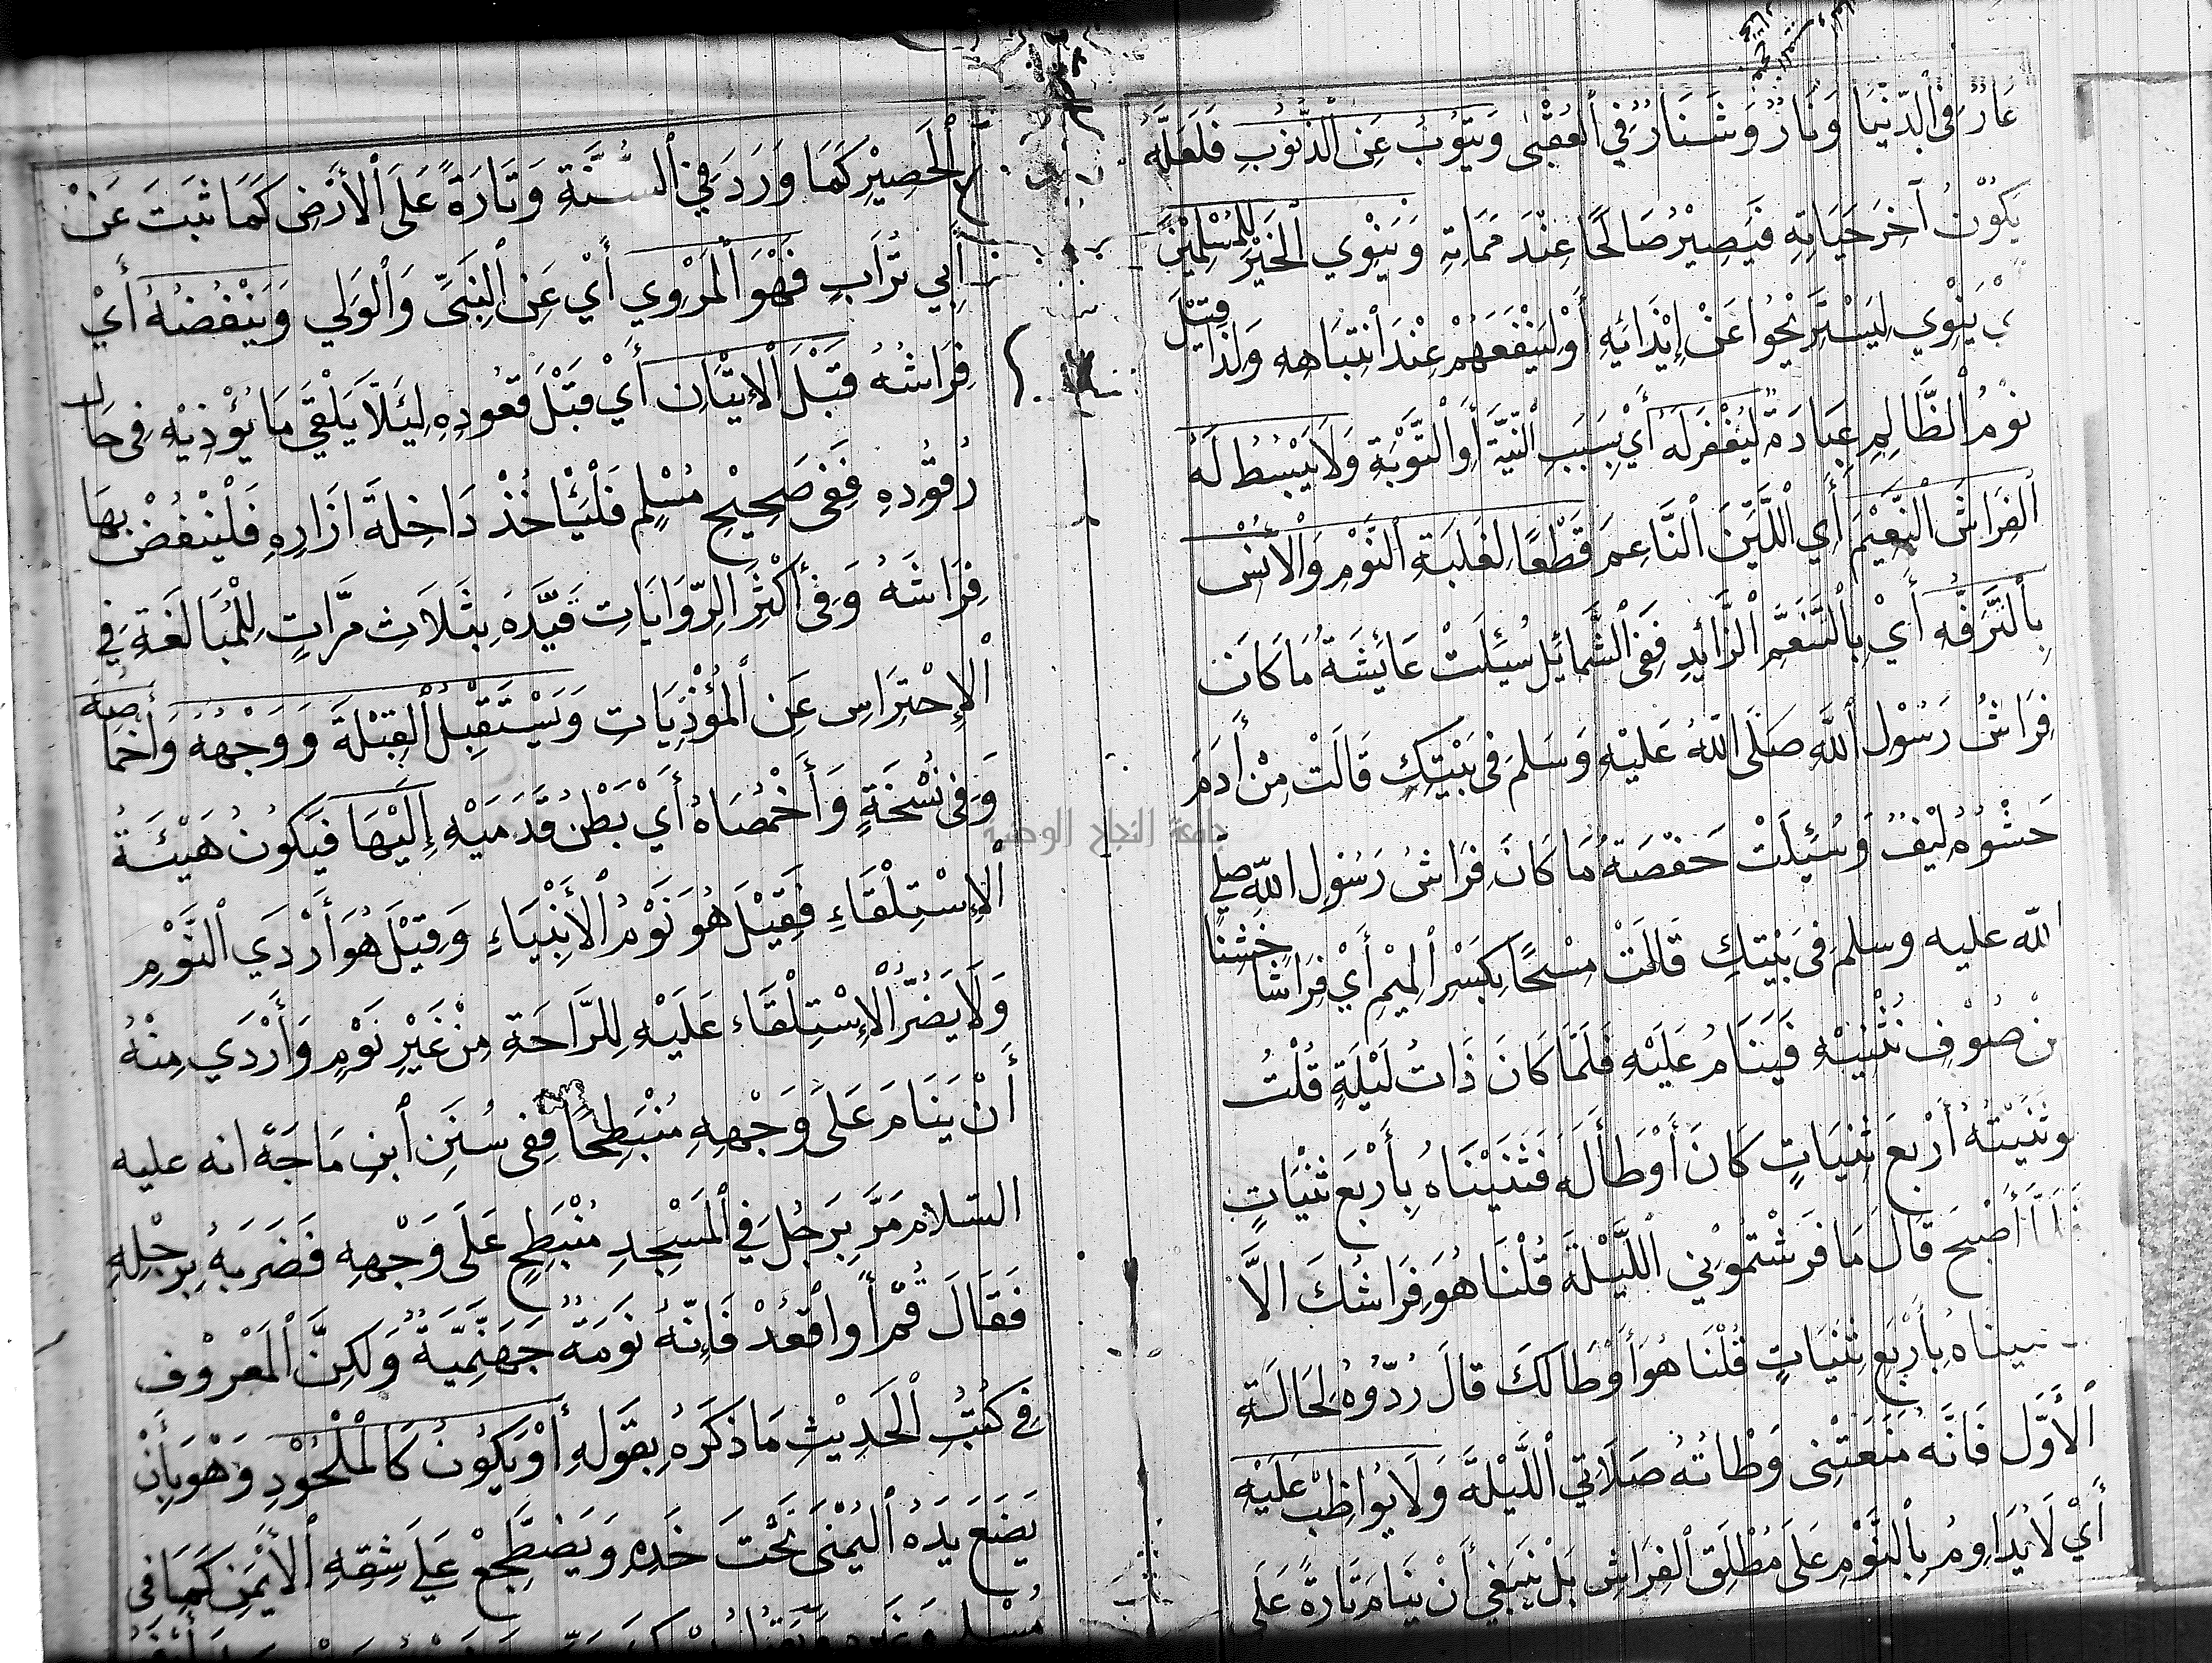 عَارٌ فِي ٱلدُّنْيَا وَنَارٌ وَشَنَارٌ فِي ٱلْعُقْبٰى وَيَتُوْبُ عَنِ ٱلْذُّنُوْبِ فَلَعَلَّهُ
يَكُوْنُ آخِرَ حَيَاتِهِ فَيَصِيْرُ صَالِحًا عِنْدَ مَمَاتِهِ وَيَنْوِي ٱلْخَيْرَ لِلْمُسْلِمِيْنَ
يَنْوِي لِيَسْتَرِيْحُوا عَنْ إِيْذَائِهِ أَوْ لِيَنْفَعَهُمْ عِنْدَ ٱنْتِبَاهِهِ وَلِذَا قِيْلَ
نَوْمُ ٱلظَّالِمِ عِبَادَةٌ لِيُغْفَرَ لَهُ أَيْ بِسَبَبِ ٱلنِّيَّةِ أَوِ ٱلتَّوْبَةِ وَلَا يَبْسُطُ لَهُ
ٱلْفِرَاشَ ٱلنَّعِيْمَ أَيِ ٱللَّيِّنَ ٱلنَّاعِمَ قَطْعًا لِغَلَبَةِ ٱلنَّوْمِ وَٱلْأُنْسِ
بِٱلتَّرَفُّهِ أَيْ بِٱلتَّنَعُّمِ ٱلزَّائِدِ فَفِي ٱلشَّمَائِلِ سُئِلَتْ عَائِشَةُ مَا كَانَ
فِرَاشُ رَسُوْلِ ٱللَّهِ صَلَّى اللّٰهُ عَلَيْهِ وَسَلَمَ فِي بَيْتِكِ قَالَتْ مِنْ أَدَمَ
حَشْوُهُ لِيْفٌ وَسُئِلَتْ حَفْصَةُ مَا كَانَ فِرَاشُ رَسُوْلِ اللّٰهِ صلى
الله عليه وسلم فِي بَيْتِكِ قَالَتْ مِسْحًا بِكَسْرِ ٱلْمِيْمِ أَيْ فِرَاشًا خَشِنًا
مِنْ صُوْفٍ نُثْنِيْهِ فَيَنَامُ عَلَيْهِ فَلَمَّا كَانَ ذَاتُ لَيْلَةٍ قُلْتُ
لو ثَنَيْتُهُ أَرْبَعَ ثِنْيَاتٍ كَانَ أَوْطَأَ لَهُ فَثَنَيْنَاهُ بِأَرْبَعِ ثِنْيَاتٍ
فَلَمَّا أَصْبَحَ قَالَ مَا فَرَشْتُمُوْنِي ٱللَّيْلَةَ قُلْنَا هُوَ فِرَاشُكَ الَّا
ثنيناهُ بِأَرْبَعِ ثِنْيَاتٍ قُلْنَا هُوَ أَوْطَا لَكَ قَالَ رُدُّوْهُ لِحَالَتِهِ
ٱلْأَوَّلِ فَانَّهُ مَنَعَتْنِي وَطْاتُهُ صَلَاتِي ٱللَّيْلَةَ وَلَا يُوَاظِبْ عَلَيْهِ
أَيْ لَا يُدَاوِمُ بِٱلنَّوْمِ عَلَى مُطْلَقِ ٱلْفِرَاشِ بَلْ يَنْبَغِي أَنْ يَنَامَ تَارَةً عَلَى
ٱلْحَصِيْرِ كَمَا وَرَدَ فِي ٱلسُّنَّةِ وَتَارَةً عَلَى ٱلْأَرْضِ كَمَا ثَبَتَ عَنْ
أَبِي تُرَابٍ فَهُوَ ٱلْمَرْوِي أَيْ عَنِ ٱلنَّبِيِّ وَٱلْوَلِي وَيَنْفُضُهُ أَيْ
فِرَاشُهُ قَبْلَ ٱلْإِتْيَانِ أَيْ قَبْلَ قُعُوْدِهِ لِئَلَّا يَلْقَى مَا يُؤْذِيْهِ فِي حَالِ
رُقُوْدِهِ فَفِي صَحِيْحِ مُسْلِمٍ فَلْيَأْخُذْ دَاخِلَةَ ازَارِهِ فَلْيَنْفُضْ بِهَا
فِرَاشَهُ وَفِي أَكْثَرِ ٱلرِّوَايَاتِ قَيَّدَهُ بِثَلَاثِ مَرَّاتٍ لِلْمُبَالَغَةِ فِي
ٱلْإِحْتِرَاسِ عَنِ ٱلْمُؤْذِيَاتِ وَيَسْتَقْبِلُ ٱلْقِبْلَةَ وَوَجْهُهُ وَأَخْمَاصُهُ
وَفِي نُسْخَةٍ وَأَخْمُصَاهُ أَيْ بَطْنُ قَدَمَيْهِ إِلَيْهَا فَيَكُوْنُ هَيْئَةُ
ٱلْإِسْتِلْقَاءِ فَقِيْلَ هُوَ نَوْمُ ٱلْأَنْبِيَاءِ وَقِيْلَ هُوَ أَرْدَي ٱلنَّوْمِ
وَلَا يَضُرُّ ٱلْإِسْتِلْقَاء عَلَيْهِ لِلرَّاحَةِ مِنْ غَيْرِ نَوْمٍ وَأَرْدَي مِنْهُ
أَنْ يَنَامَ عَلَى وَجْهِهِ مُنْبَطِحًا فَفِي سُنَنِ ٱبْنِ مَاجَةً انه عليه
السلام مَرَّ بِرَجُلٍ فِي ٱلْمَسْجِدِ مُنْبَطِحٍ عَلَى وَجْهِهِ فَضَرَبَهُ بِرِجْلِهِ
فَقَالَ قُمْ أَوِ اقْعُدْ فَإِنَّهُ نَوْمَةٌ جَهَنَّمِيَّةٌ وَلَكِنَّ ٱلْمَعْرُوْف
فِي كُتُبِ ٱلْحَدِيْثِ مَا ذَكَرَهُ بِقَوْلِهِ أَوْ يَكُوْنُ كَالْمَلْحُوْدِ وَهْوَ بِأَنْ
يَضَعَ يَدَهُ ٱلْيُمْنَى تَحْتَ خَدِهِ وَيَضْطَجِعْ عَلَى شِقِهِ ٱلْأَيْمَنِ كَمَا فِي